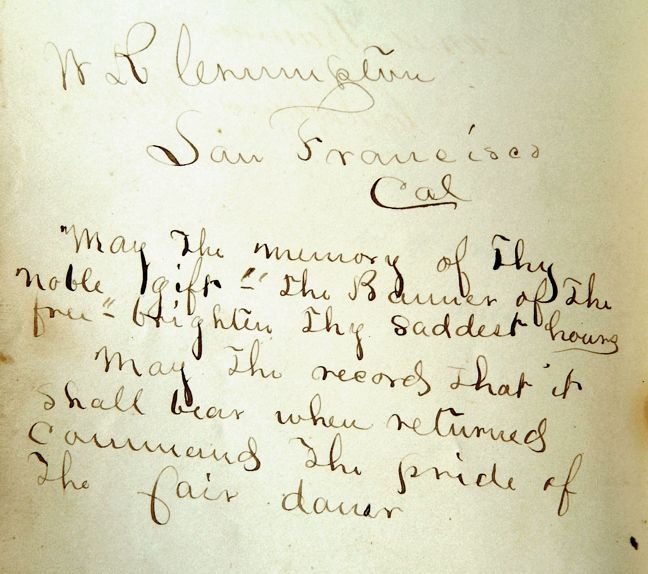 W R Clennington
San Francisco
Cal
"May The memory of Thy
noble gift - "The Banner of The
free" - brighten Thy saddest hours
May The records That it
shall bear when returned
Command The pride of
The fair doner